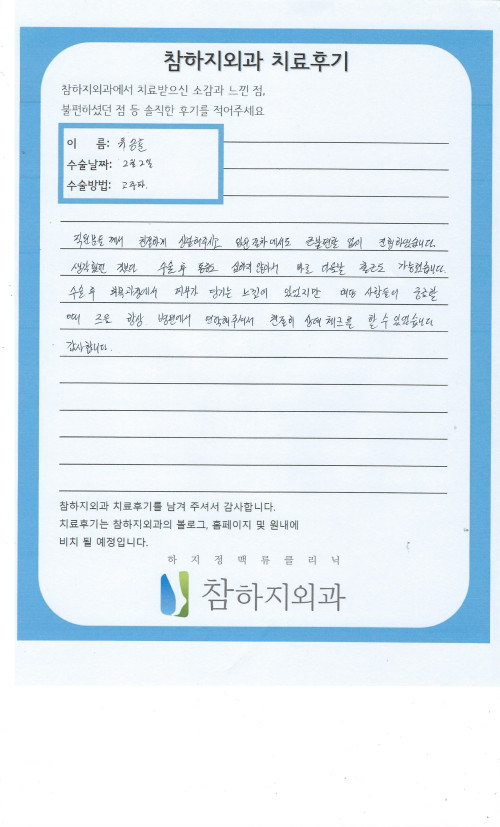 참하지외과 치료후기
참하지외과에서 치료받으신 소감과 느낀 점,
불편하셨던 점 등 솔직한 후기를 적어주세요
이 름:
수술날짜: 2월 2일
수술방법: 고주파.
직원분들 께서 친절하게 상담해주시고 입원 절차에서도 큰불편함 없이 진행하였습니다.
생각했던 것보다 수술 후 통증도 심하지 않아서 바로 다음날 출근도 가능했습니다.
수술 후 회복과정에서 피부가 당기는 느낌이 있었지만 사람들이 궁금할
때 즈음 항상 병원에서 연락해주셔서 편안히 상태 체크를 할 수 있었습니다
감사합니다.
참하지외과 치료후기를 남겨 주셔서 감사합니다.
치료후기는 참하지외과의 블로그, 홈페이지 및 원내에
비치 될 예정입니다.
하지정맥류클리닉
참하지외과